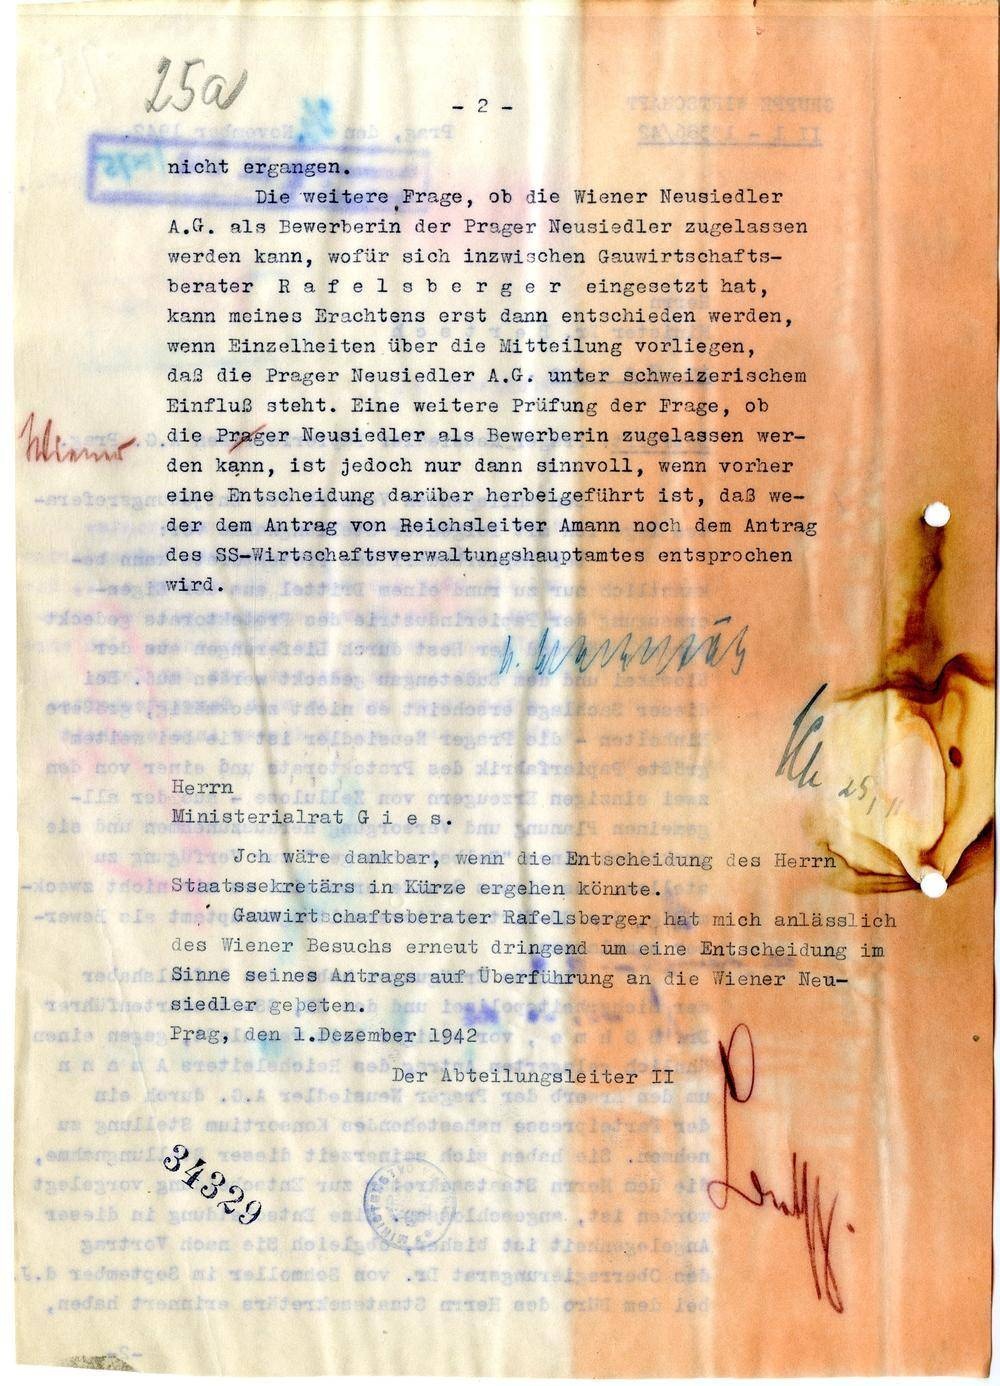 25a
- 2 -
nicht ergangen.
Die weitere Frage, ob die Wiener Neusiedler
A.G. als Bewerberin der Prager Neusiedler zugelassen
werden kann, wofür sich inzwischen Gauwirtschafts-
berater R a f e l s b e r g e r eingesetzt hat,
kann meines Erachtens erst dann entschieden werden,
wenn Einzelheiten über die Mitteilung vorliegen,
daß die Prager Neusiedler A.G. unter schweizerischem
Einfluß steht. Eine weitere Prüfung der Frage, ob
Wiener
die Prager Neusiedler als Bewerberin zugelassen wer-
den kann, ist jedoch nur dann sinnvoll, wenn vorher
eine Entscheidung darüber herbeigeführt ist, daß we-
der dem Antrag von Reichsleiter Amann noch dem Antrag
des SS-Wirtschaftsverwaltungshauptamtes entsprochen
wird.
25/11
Herrn
Ministerialrat G i e s.
Jch wäre dankbar, wenn die Entscheidung des Herrn
Staatssekretärs in Kürze ergehen könnte.
Gauwirtschaftsberater Rafelsberger hat mich anlässlich
des Wiener Besuchs erneut dringend um eine Entscheidung im
Sinne seines Antrags auf Überführung an die Wiener Neu-
siedler gebeten.
Prag, den 1.Dezember 1942
Der Abteilungsleiter II
34329